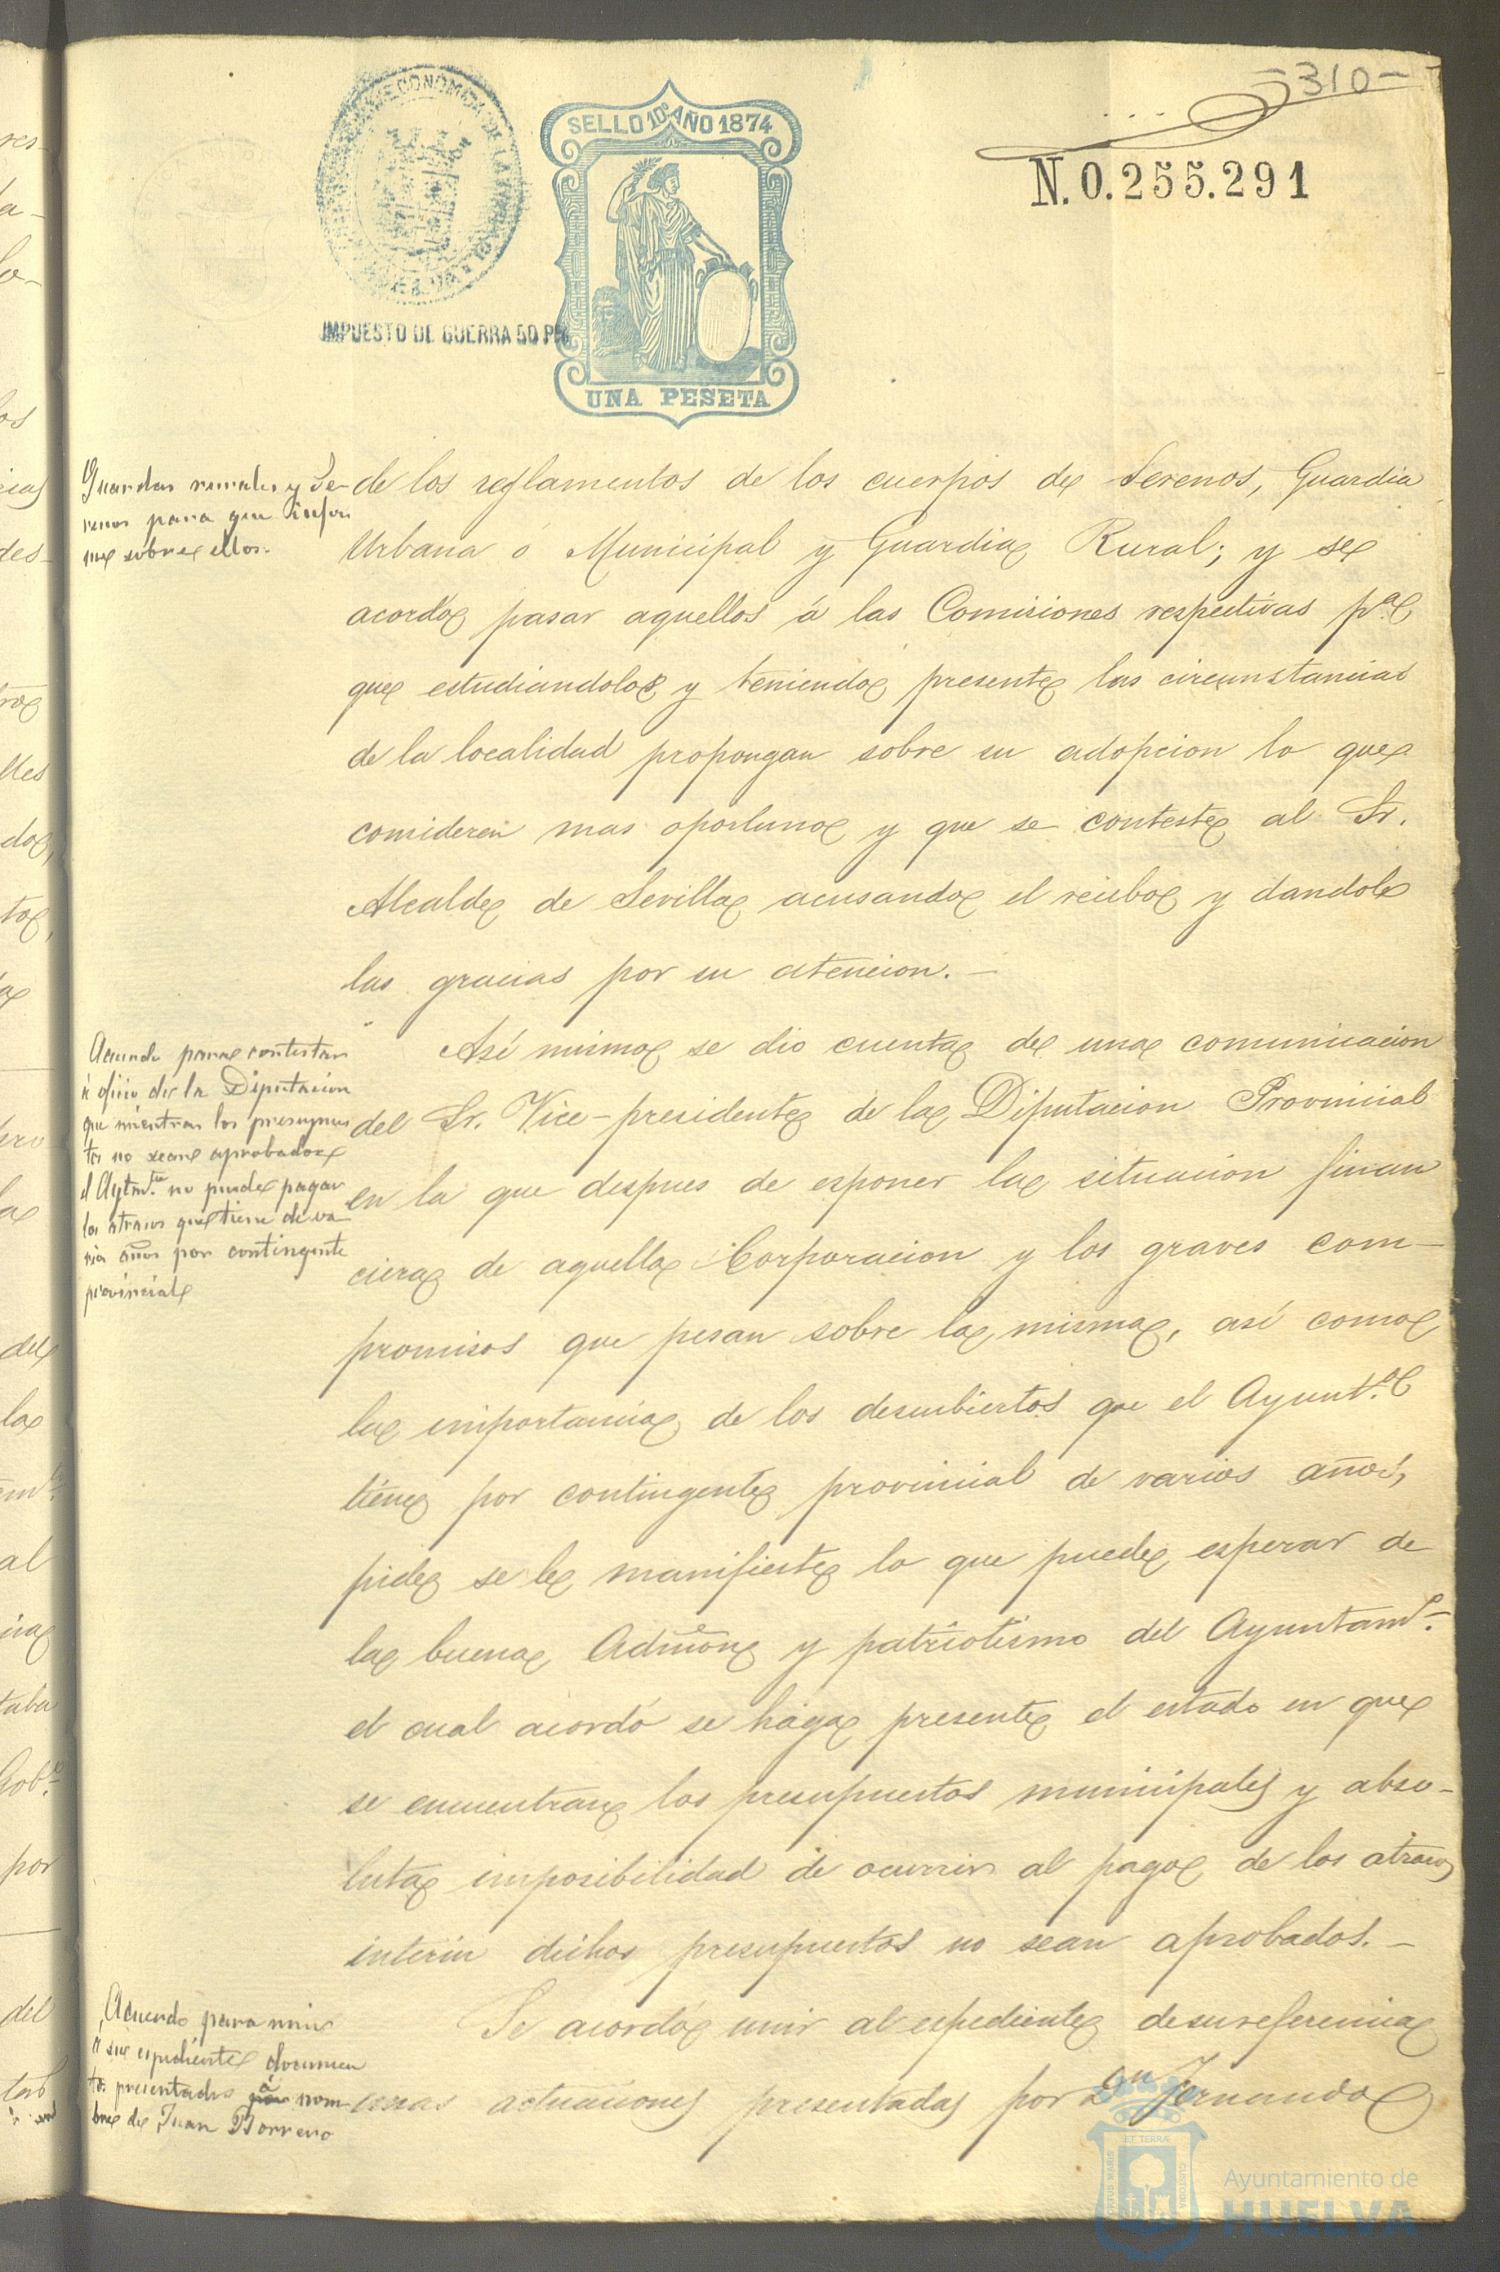 -310-
SELLO 10º AÑO 1874
N. 0.255.291
IMPUESTO DE GUERRA 50 P%
UNA PESETA
Guardas rurales y Se-
renos para que infor
me sobre ellos.
de los reglamentos de los cuerpos de Serenos, Guardia
Urbana ó Municipal y Guardia Rural; y se
acordó pasar aquellos á las Comisiones respectivas pª
que estudiandolos y teniendo presente las circunstancias
de la localidad propongan sobre su adopcion lo que
consideren mas oportuno y que se conteste al Sr.
Alcalde de Sevilla acusando el recibo y dandole
las gracias por su atencion. —
Acuerdo para contestar
á oficio de la Diputacion
que mientras los presupues
tos no sean aprobados
el Aytmto. no puede pagar
los atrasos que tiene de va
rios años por contingente
provincial
Asi mismo se dio cuenta de una comunicacion
del Sr. Vice-presidente de la Diputacion Provincial
en la que despues de esponer la situacion finan
ciera de aquella Corporacion y los graves com-
promisos que pesan sobre la misma, asi como
la importancia de los descubiertos que el Ayuntº.
tiene por contingente provincial de varios años,
pide se le manifieste lo que puede esperar de
la buena Admon y patriotismo del Ayuntamº.
el cual acordó se haga presente el estado en que
se encuentran los presupuestos municipales y abso-
luta imposibilidad de ocurrir al pago de los atrasos
interin dichos presupuestos no sean aprobados. —
Acuerdo para unir
á su espediente documen
tos presentados á nom
bre de Juan Borrero
Se acordó unir al espediente de su referencia
unas actuaciones presentadas por Dn Fernando
ET TERRÆ
PORTUS MARIS
CUSTODIA
Ayuntamiento de
HUELVA